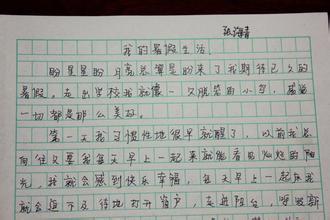 张海青
我的暑假生活
盼星星盼月亮总算是盼来了我期待已久的
暑假。走出学校我就像一只脱笼的小鸟,感觉
一切都是那么美好。
第一天我习惯性地很早就醒了,以前我总
向往夏日每天早上一起来就能看见灿烂的阳
光,我就会感到快乐幸福,每天早上一起床我
就会迫不及待地打开窗户,走进阳台,呼吸新